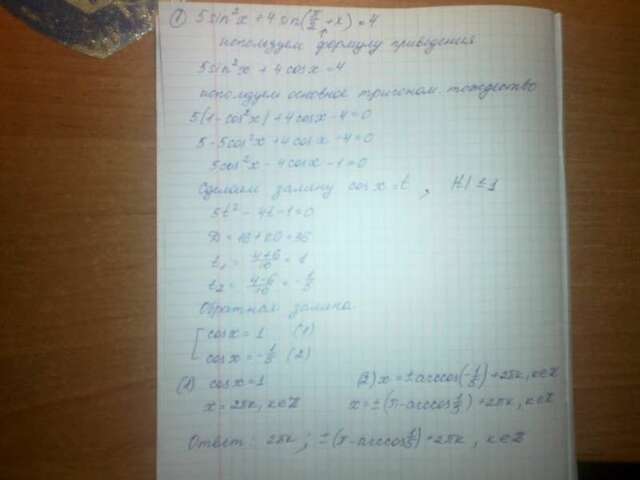 ① 5sin²x + 4sin(π/2 + x) = 4
используем формулу приведения
5sin²x + 4cosx = 4
используем основное тригоном. тождество
5(1 - cos²x) + 4cosx - 4 = 0
5 - 5cos²x + 4cosx - 4 = 0
5cos²x - 4cosx - 1 = 0
Сделаем замену cosx = t, |t| ≤ 1
5t² - 4t - 1 = 0
D = 16 + 20 = 36
t₁ = (4+6)/10 = 1
t₂ = (4-6)/10 = -1/5
Обратная замена
[ cosx = 1 (1)
cosx = -1/5 (2)
(1) cosx = 1 (2) x = ± arccos(-1/5) + 2πk, k∈Z
x = 2πk, k∈Z x = ±(π - arccos 1/5) + 2πk, k∈Z
Ответ: 2πk; ±(π - arccos 1/5) + 2πk, k∈Z